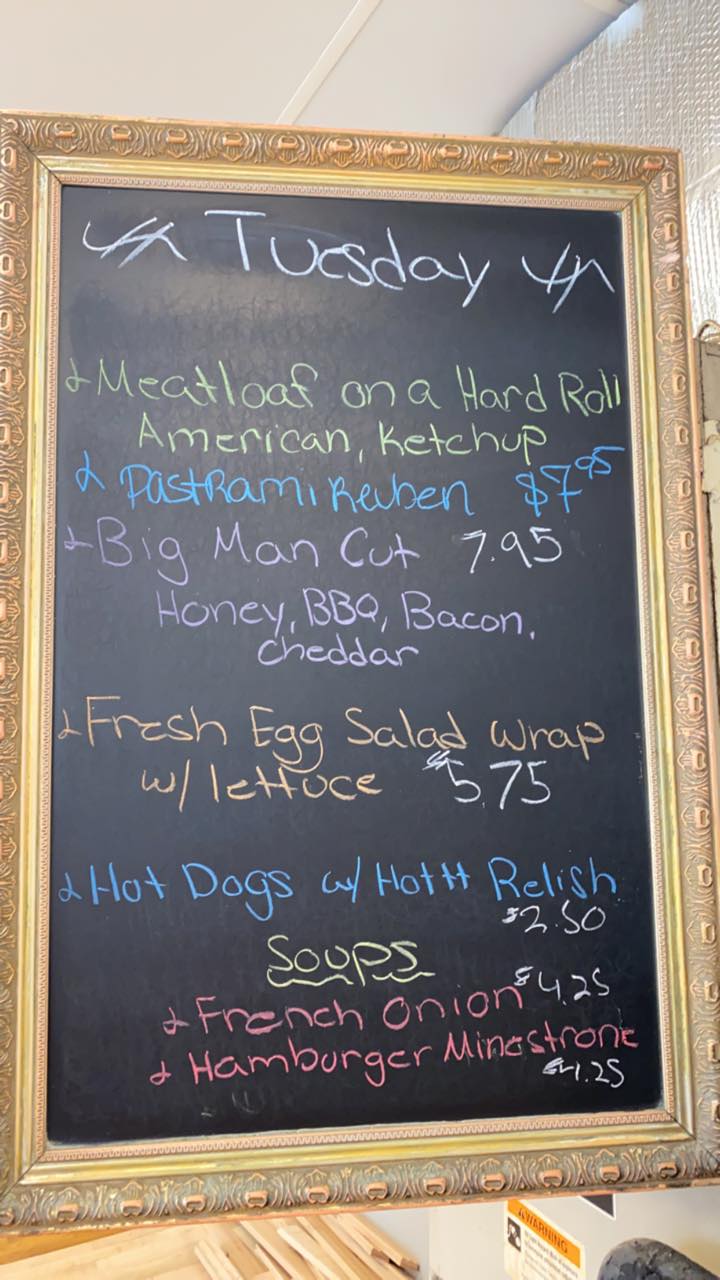 Tuesday
Meatloaf on a Hard Roll
American, Ketchup
Pastrami Reuben $7.95
Big Man Cut 7.95
Honey, BBQ, Bacon,
cheddar
Fresh Egg Salad wrap
w/ lettuce $5.75
Hot Dogs w/ Hottt Relish
$2.50
Soups
French Onion $4.25
Hamburger Minestrone
$4.25
WARNING